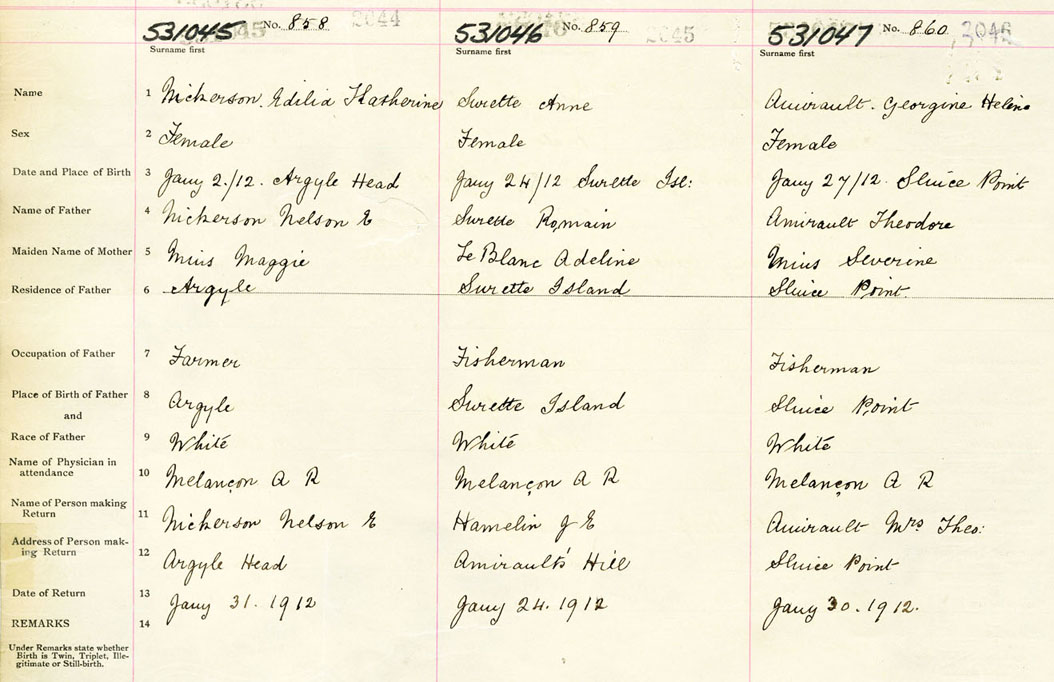 531045 No. 858 2044 531046 No. 859 2045 531047 No. 860 2046
Surname first Surname first Surname first
Name 1 Nickerson. Edilid Katherine Surette Anne Amirault. Georgine Helena
Sex 2 Female Female Female
Date and Place of Birth 3 Jany 2./12. Argyle Head Jany 24/12 Surette Isl: Jany 27/12. Sluice Point
Name of Father 4 Nickerson Nelson E Surette Romain Amirault Theodore
Maiden Name of Mother 5 Mius Maggie Le Blanc Adeline Mius Severine
Residence of Father 6 Argyle Surette Island Sluice Point.
Occupation of Father 7 Farmer Fisherman Fisherman
Place of Birth of Father 8 Argyle Surette Island Sluice Point
and
Race of Father 9 White White White
Name of Physician in
attendance 10 Melançon A R Melançon A R Melançon A R
Name of Person making
Return 11 Nickerson Nelson E Hamelin J E Amirault Mrs Theo:
Address of Person mak-
ing Return 12 Argyle Head Amirault's Hill Sluice Point
Date of Return 13 Jany 31. 1912 Jany 24. 1912 Jany 30. 1912.
REMARKS 14
Under Remarks state whether
Birth is Twin, Triplet, Ille-
gitimate or Still-birth.